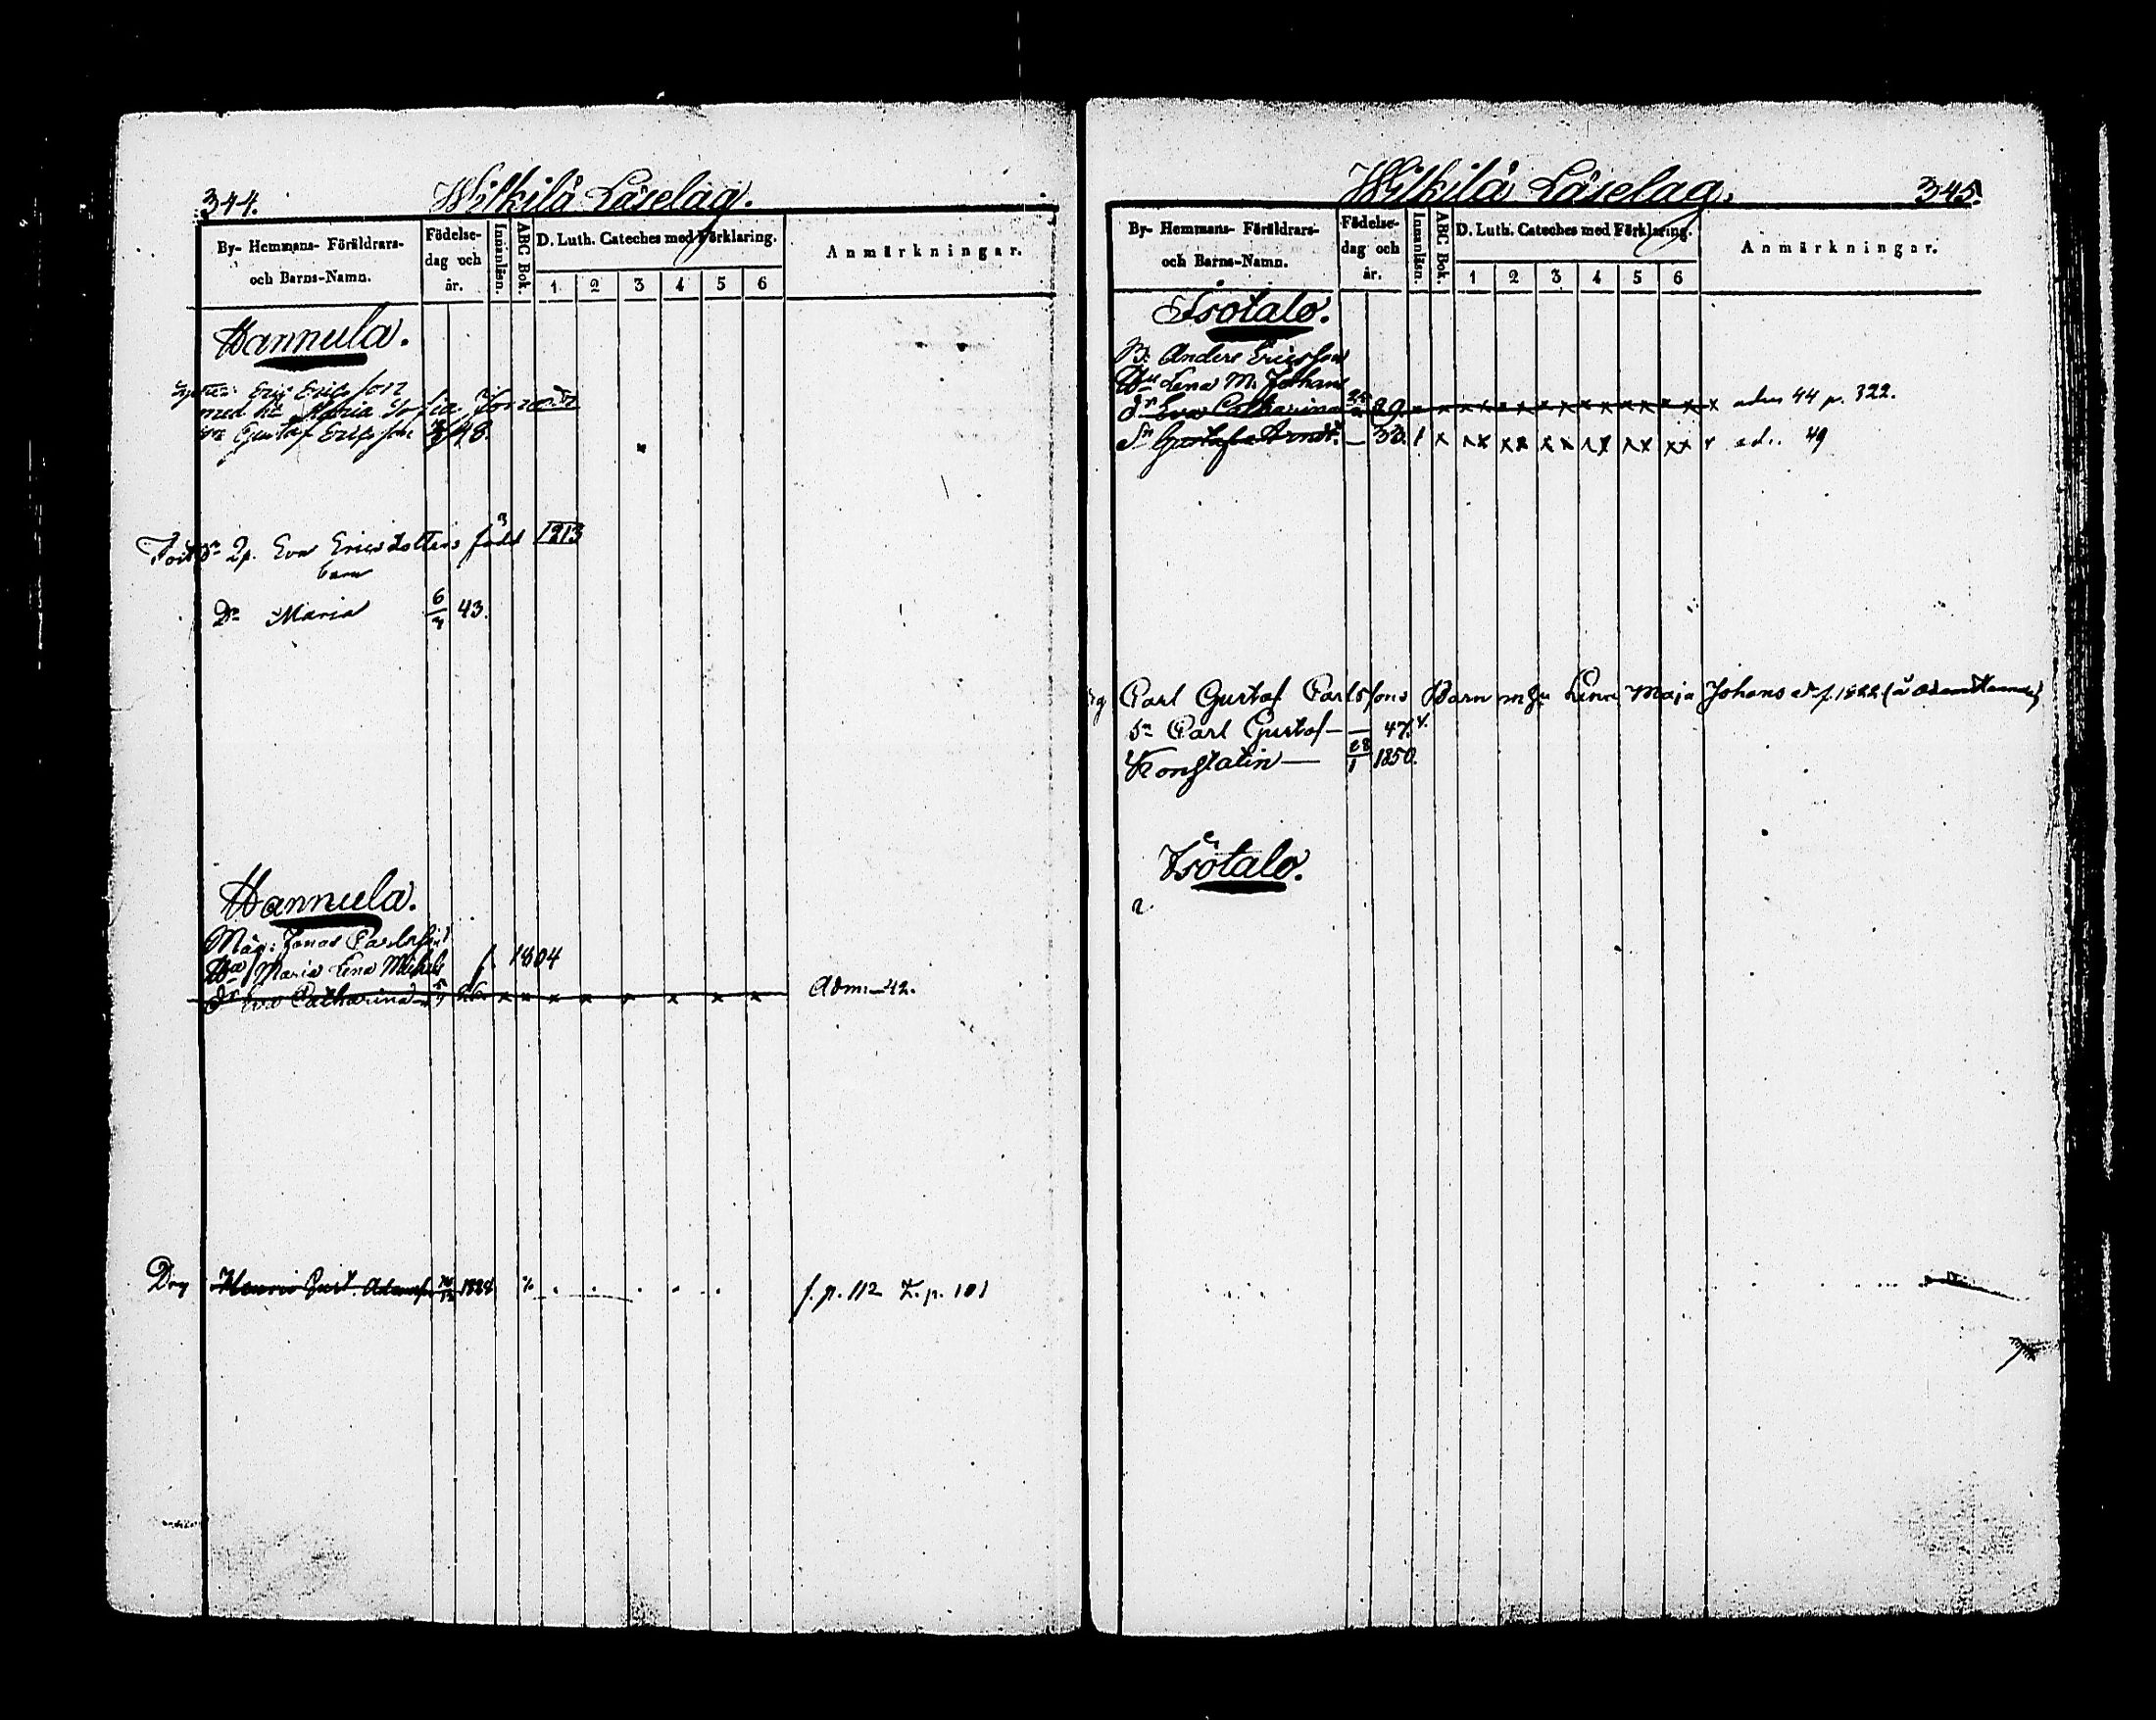 344.
Wilkilä Läselag.
By- Hemmans- Föräldrars- och Barns-Namn.
Födelse- dag och år.
Innanläsn.
ABC Bok.
D. Luth. Cateches med Förklaring.
1 2 3 4 5 6
Anmärkningar.
Hannula.
Eric Ericsson
med h. Maria Sofia
Sn Gustaf Ericsson 48.
2p. Eva Ericsdotters född 1813
barn
Dr Maria 6/3 43.
Hannula.
Måg: Jonas Carlsson
Hu Maria Lena Michels f. 1804
dr Eva Catharina 26. x x x x x x x x Adm:-42.
Drg Henric Gust. Adamss. 1824 f. p. 112 p. 101
Wilkilä Läselag.
345.
By- Hemmans- Föräldrars- och Barns-Namn.
Födelse- dag och år.
Innanläsn.
ABC Bok.
D. Luth. Cateches med Förklaring.
1 2 3 4 5 6
Anmärkningar.
Isotalo.
B: Anders Ericsson
Hu Lena M. Johans
dr Eva Catharina 29. x x x x x x x x x x x x x x x adm 44 p. 322.
Sn Gustaf — 33. 1 x x x x x x x x x x x x x x 49
Carl Gustaf Carlssons Barn m hu Lena Maja Johans dr f. 1822
Sn Carl Gustaf — — 47.
Konstatin — 28/1 1850.
Isotalo.